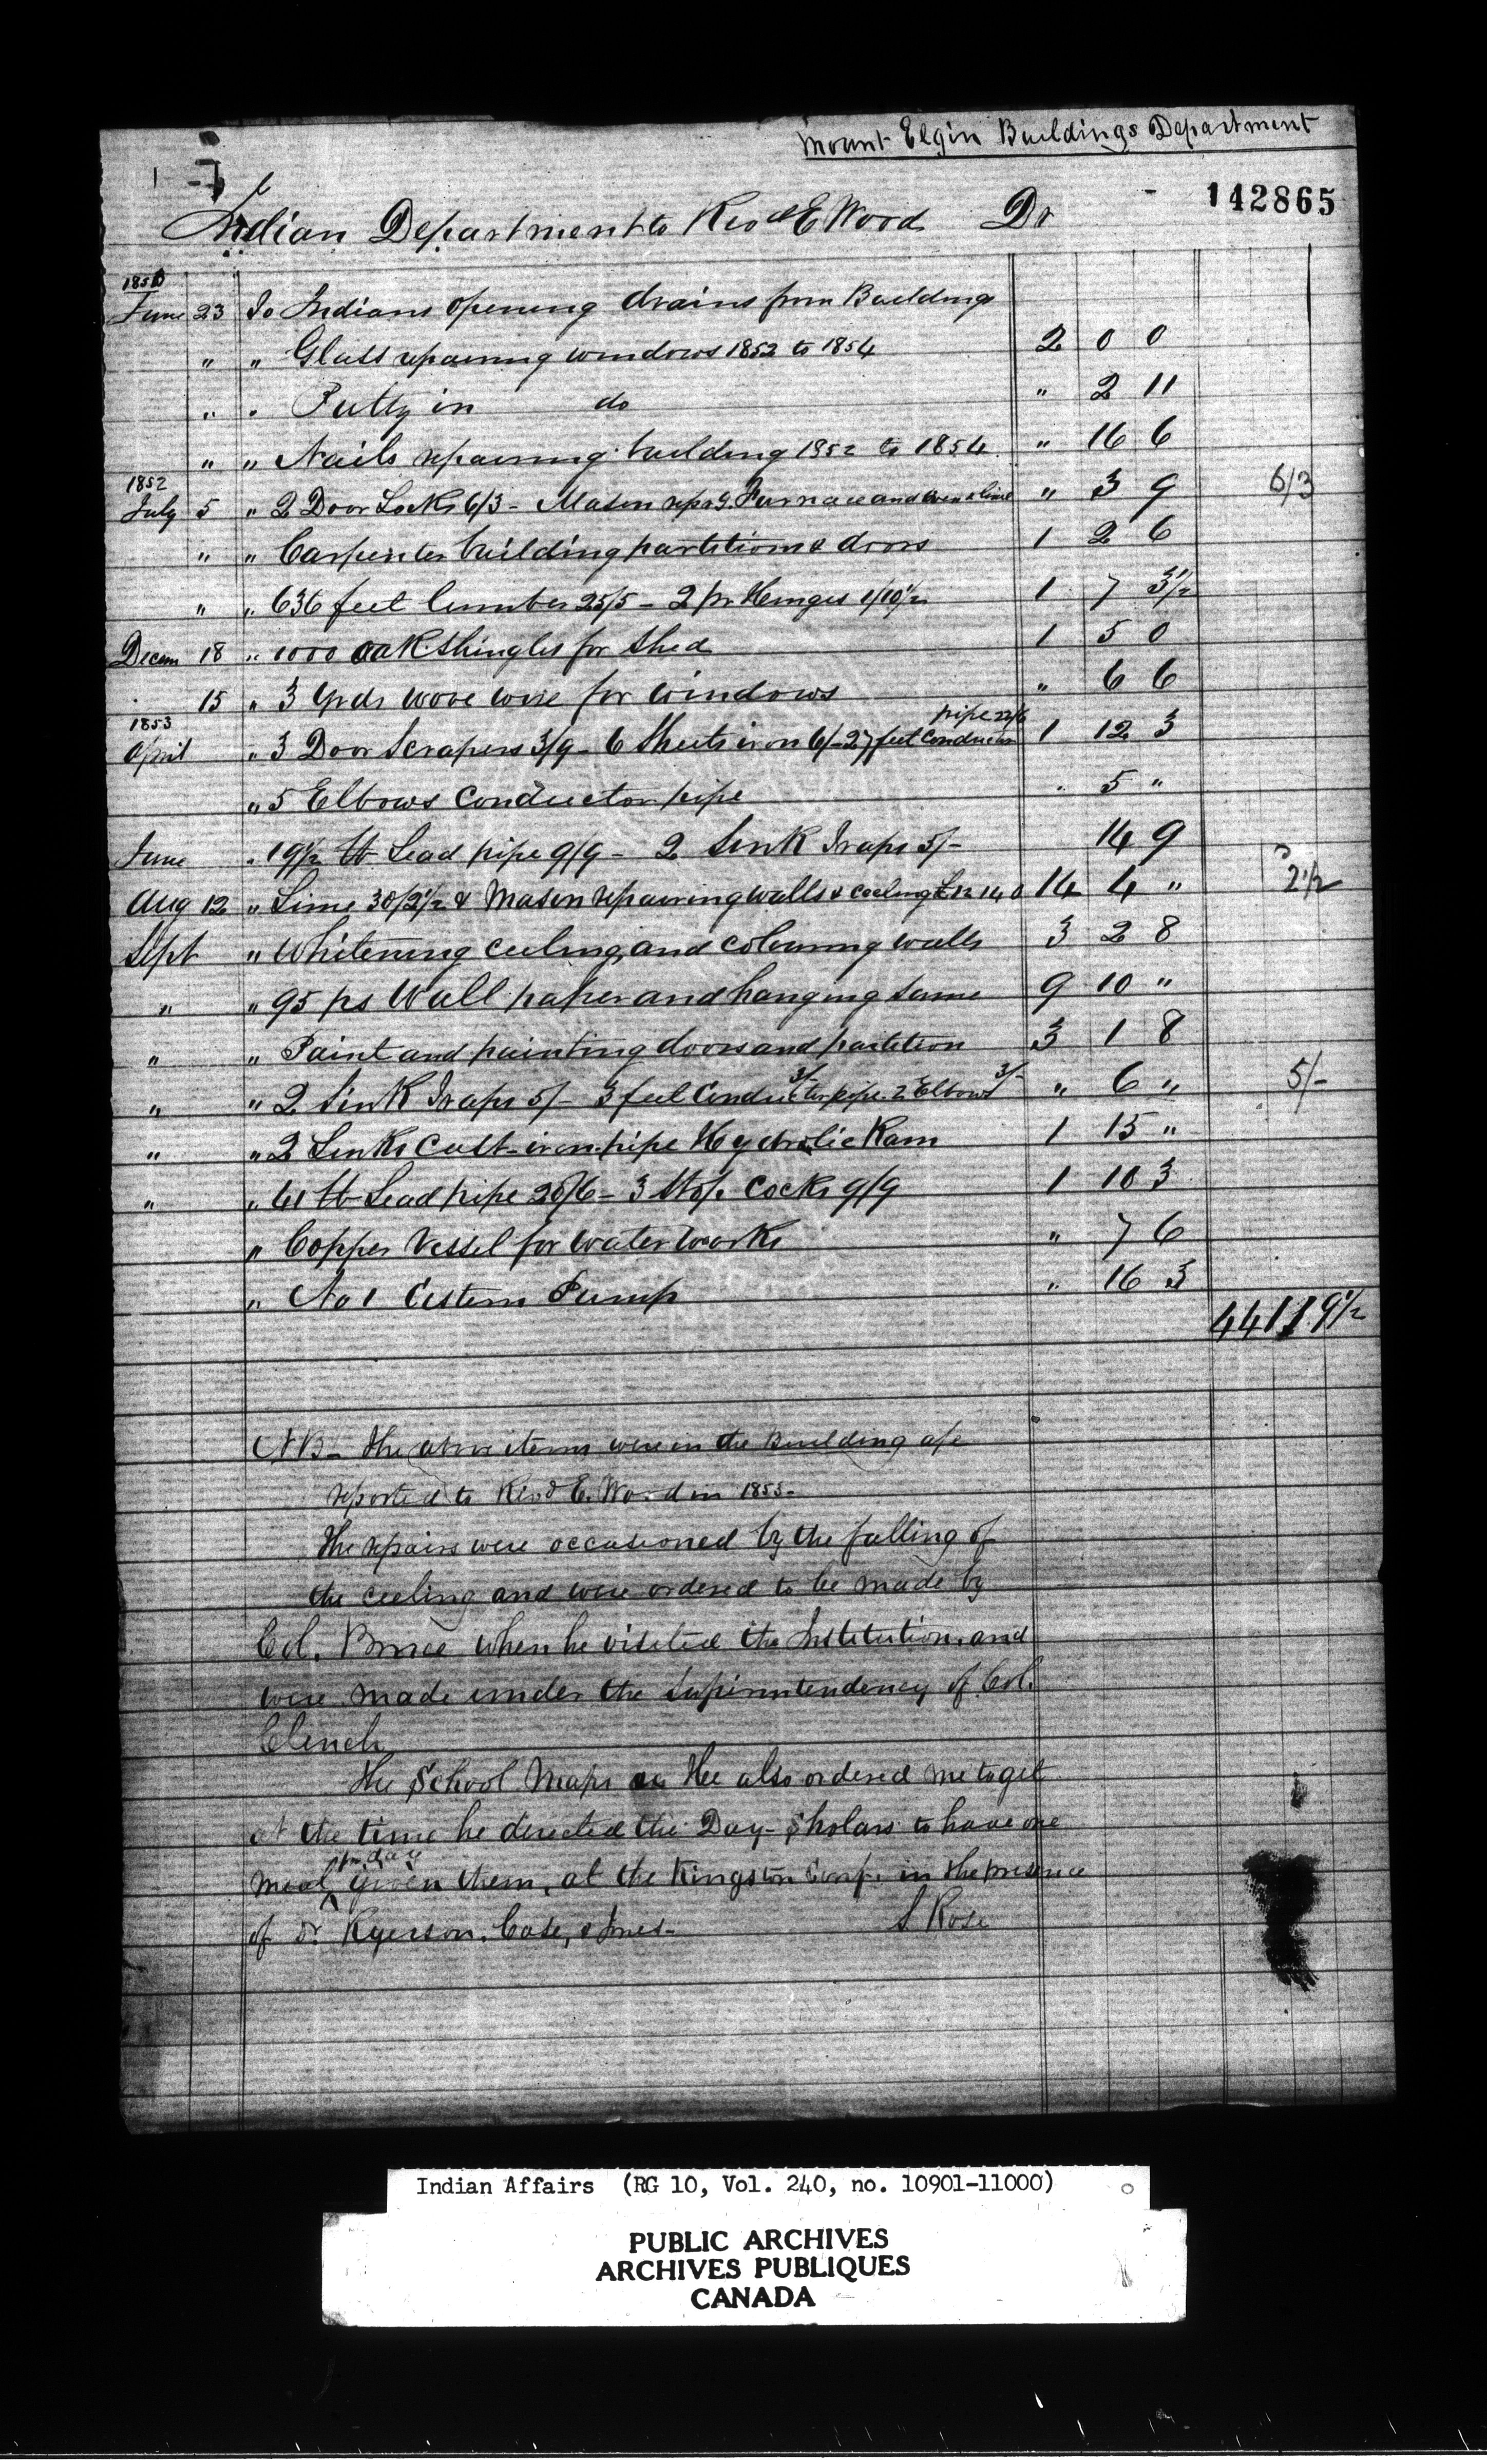 Mount Elgin Buildings Department
142865
Indian Department to Revd E Wood Dr
1850
June 23 To Indians opening drains from Buildings
" " Glass repairing windows 1852 to 1854 2 0 0
" " Putty in do " 2 11
" " Nails repairing building 1852 to 1854 " 16 6
1852
July 5 " 2 Door Locks 6/3 - Mason repg. Furnace and oven & lime " 3 9 6/3
" " Carpenter building partitions & doors 1 2 6
" " 636 feet lumber 25/5 - 2 pr Hinges 1/10½ 1 7 3½
Decem 18 " 1000 oak shingles for shed 1 5 0
15 " 3 Yrds wove wire for windows " 6 6
1853
April " 3 Door Scrapers 3/9 - 6 Sheets iron 6/- 27 feet Conductor pipe 22/6 1 12 3
" 5 Elbows Conductor pipe " 5 "
June " 19½ lb Lead pipe 9/9 - 2 Sink Traps 5/- 14 9
Aug 12 " Lime 30/2½ & Mason repairing walls & ceeling £12 14 0 14 4 " 2½
Sept " Whitening ceeling, and colouring walls 3 2 8
" " 95 ps Wall paper and hanging same 9 10 "
" " Paint and painting doors and partition 3 1 8
" " 2 Sink Traps 5/- 3 feet Conductor pipe 3/- 2 Elbows 3/- " 6 " 5/-
" " 2 Sinks Cast-iron pipe Hydrolic Ram 1 15 "
" " 41 lb Lead pipe 20/6 - 3 Stop Cocks 9/9 1 10 3
" Copper Vessel for water works " 7 6
" No 1 Cistern Pump " 16 3
44 11 9½
NB - The above items were in the Building a/c
reported to Revd E. Wood in 1853 -
The repairs were occasioned by the falling of
the ceeling and were ordered to be made by
Col. Bruce when he visited the Institution, and
were made under the Superintendency of Col.
Clench
The School Maps He also ordered me to get
at the time he directed the Day-Scholars to have one
meal pr day given them, at the Kingston Conf. in the presence
of Dr Ryerson, Case, & Jones - S Rose
Indian Affairs (RG 10, Vol. 240, no. 10901-11000)
PUBLIC ARCHIVES
ARCHIVES PUBLIQUES
CANADA